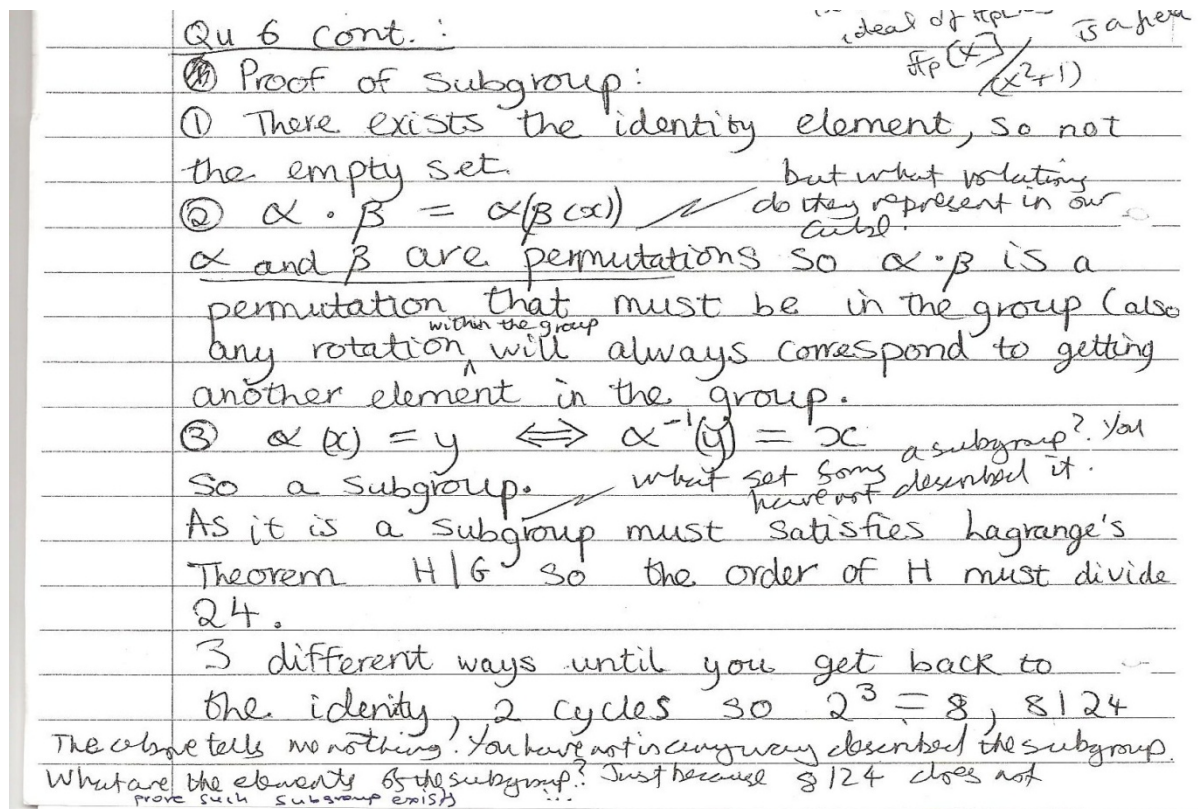 Qu 6 cont. :
ideal of
is a
Fp[x]/(x²+1)
Proof of Subgroup:
① There exists the identity element, so not
the empty set.
but what
② α . β = α(β(x))
do they represent in our
α and β are permutations so α·β is a
permutation that must be in the group (also
within the group
any rotation ^ will always correspond to getting
another element in the group.
③ α(x) = y ⟺ α⁻¹(y) = x
a subgroup? You
So a subgroup.
what set forms
have not described it.
As it is a subgroup must satisfies Lagrange's
Theorem H|G so the order of H must divide
24.
3 different ways until you get back to
the idenity, 2 cycles so 2³ = 8, 8|24
The above tells me nothing! You have not in any way described the subgroup.
What are the elements of the subgroup? Just because 8|24 does not
prove such subgroup exists ...